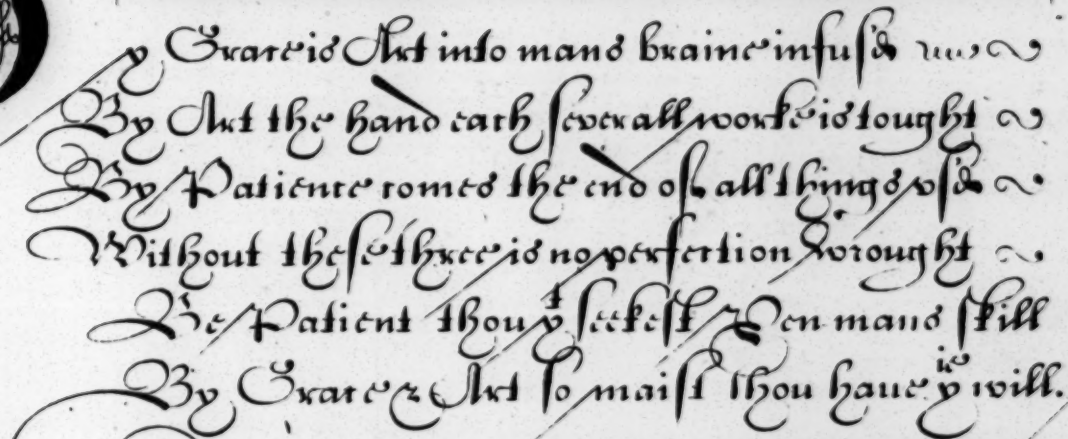 By Grace is Art into mans braine infus'd
By Art the hand each severall worke is tought
By Patience comes the end of all things vs'd
Without these three is no perfection wrought
Be Patient thou yt seekest Pen mans skill
By Grace & Art so maist thou haue yie will.